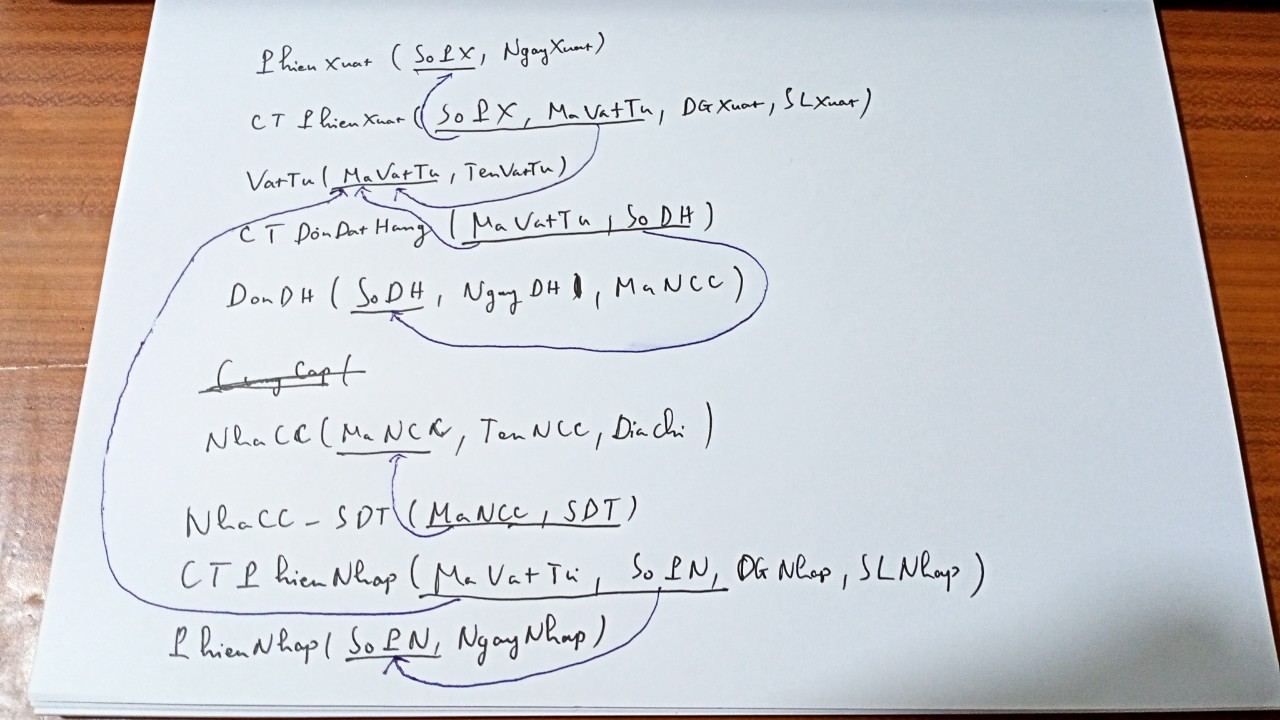 PhieuXuat ( SoPX, NgayXuat)
CT PhieuXuat ( SoPX, MaVatTu, DGXuat, SLXuat)
VatTu ( MaVatTu, TenVatTu)
CT DonDatHang ( MaVatTu, SoDH)
DonDH ( SoDH, NgayDH, MaNCC)
CungCap (
NhaCC ( MaNCC, TenNCC, Diachi)
NhaCC - SDT ( MaNCC, SDT)
CTPhieuNhap ( MaVatTu, SoPN, DGNhap, SLNhap)
PhieuNhap ( SoPN, NgayNhap)